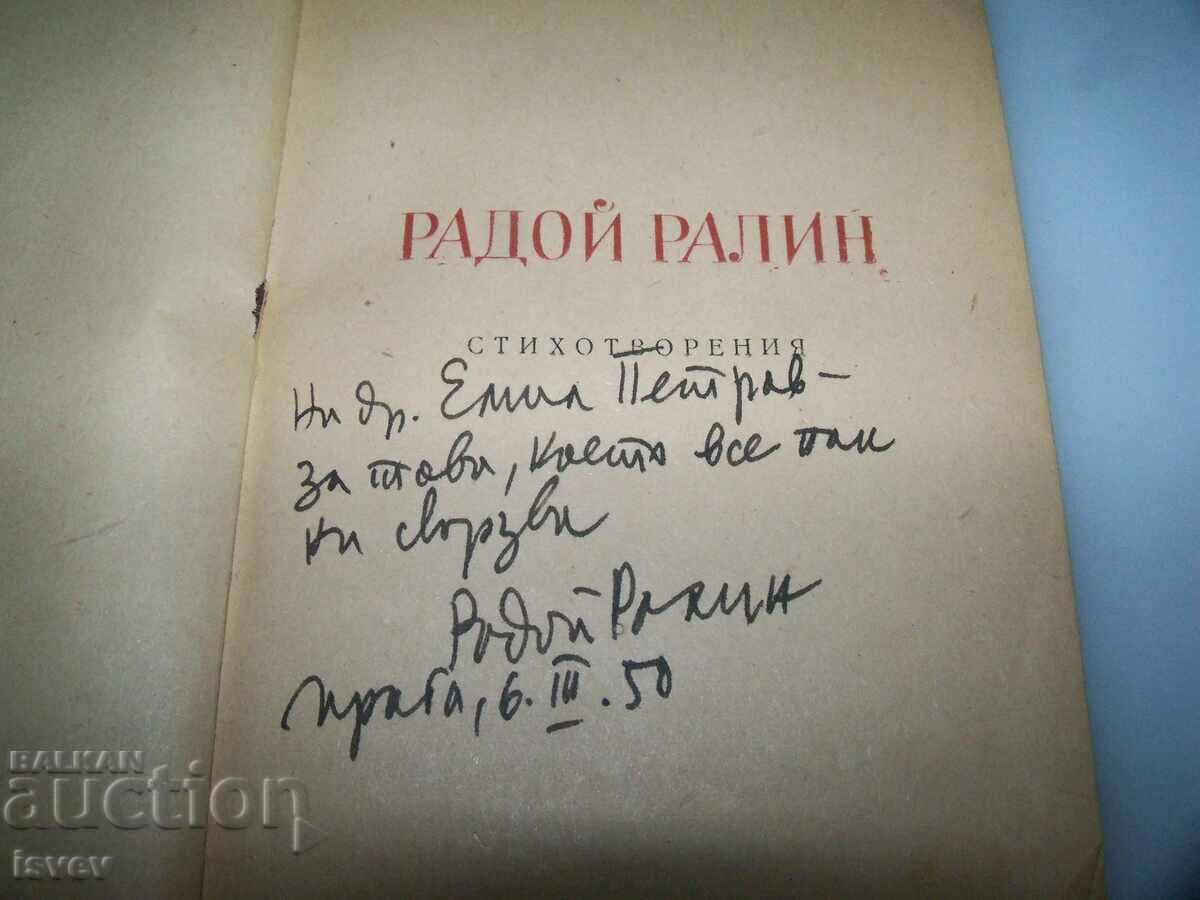 РАДОЙ РАЛИН
СТИХОТВОРЕНИЯ
На др. Емил Петров –
за това, което все пак
ни свързва
Радой Ралин
Прага, 6.III.50
BALKAN
auction
isvev